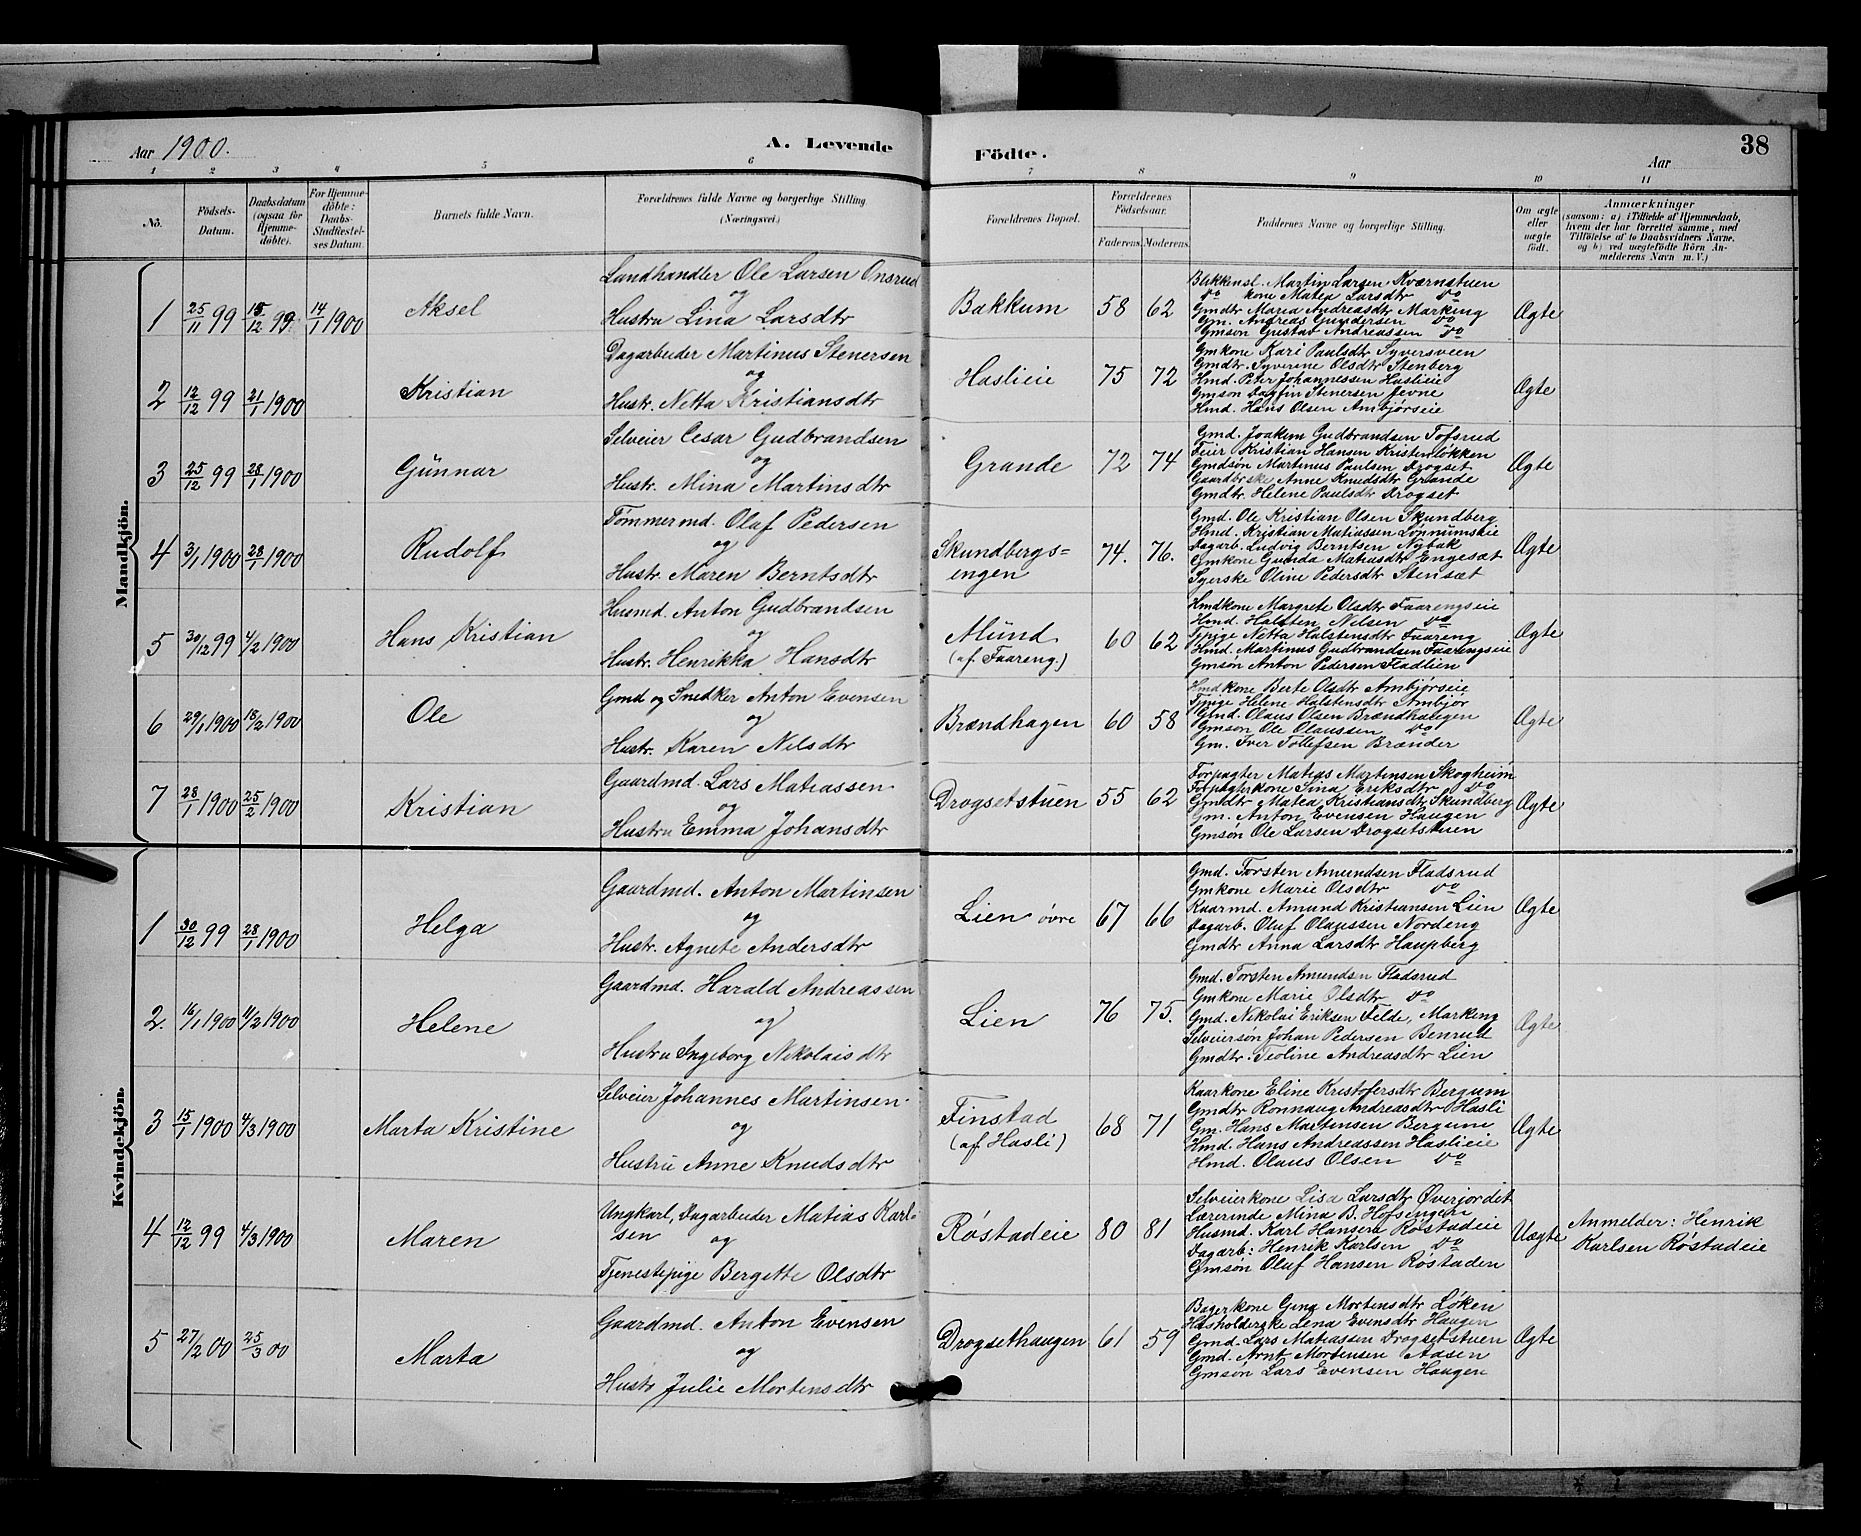 Aar 1900.
A. Levende
Födte.
Aar
38
1 2 3 4 5 6 7 8 9 10 11
No.
Födsels-
Datum.
Daabsdatum
(ogsaa for
Hjemme-
döbte).
For Hjemme-
döbte:
Daabs-
Stadfæstel-
ses Datum.
Barnets fulde Navn.
Forældrenes fulde Navne og borgerlige Stilling
(Næringsvei.)
Forældrenes Bopæl.
Forældrenes
Födselsaar.
Faderens. Moderens.
Faddernes Navne og borgerlige Stilling.
Om ægte
eller
uægte
födt.
Anmærkninger
(saasom: a) i Tilfælde af Hjemmedaab,
hvem der har forrettet samme, med
Tilföielse af to Daabsvidners Navne,
og b) ved uægtefödte Börn An-
melderens Navn m. V.)
Mandkjön.
1 25/11 99 15/12 99 14/1 1900 Aksel
Landhandler Ole Larsen Onsrud
og
Hustru Lina Larsdtr
Bakkum 58 62
Martin Larsen Kværnstuen
do kone Matea Larsdtr do
Gmdtr Maria Andreasdtr Marking
Gm. Andreas Gundersen do
Gmson Gustav Andreassen do
Ægte
2 12/12 99 21/1 1900 Kristian
Dagarbeider Martinus Stenersen
og
Hustr. Netta Kristiansdtr
Haslieie 75 72
Gmkone Kari Paulsdtr Syversveen
Gmdtr. Syverine Olsdtr Stenberg
Hmd. Peter Johannessen Haslieie
Gmson Dagfin Stenersen Jevne
Hmd. Hans Olsen Ambjørseie
Ægte
3 25/12 99 28/1 1900 Günnar
Selveier Cesar Gudbrandsen
og
Hustr. Mina Martinsdtr
Grande 72 74
Gmd. Joakim Gudbrandsen Tofsrud
Feier Kristian Hansen Kristenløkken
Gmdsøn Martinus Paulsen Drogset
Gaardbrske Anne Knudsdtr Grande
Gmdtr. Helene Paulsdtr Drogset
Ægte
4 3/1 1900 28/1 1900 Rudolf
Tømmermd. Olaf Pedersen
og
Hustr. Maren Berntsdtr
Skundbergs=
engen 74. 76.
Gmd. Ole Kristian Olsen Skundberg
Hmd. Kristian Matiassen Sønnumseie
Dagarb. Ludvig Berntsen Nybak
Gmkone Gunda Matiasdtr Engesæt
Syerske Oline Pedersdtr Stensæt
Ægte
5 30/12 99 4/2 1900 Hans Kristian
Husmd. Anton Gudbrandsen
og
Hustr. Henrikka Hansdtr
Münd
(af. Faareng.) 60 62
Hmdkone Margrete Olsdtr Faarengseie
Hmd. Halsten Nilsen do
Tpige Netta Halstensdtr Faareng
Hmd. Martinus Gudbrandsen Faarengseie
Gmsøn Anton Pedersen Fladlien
Ægte
6 29/1 1900 18/2 1900 Ole
Gmd og Snedker Anton Evensen
og
Hustr. Karen Nilsdtr
Brændhagen 60 58
Hmdkone Berte Olsdtr Ambjørseie
Tpige Helene Halstensdtr Ambjør
Gmd. Olaus Olsen Brændhaugen
Gmson Ole Olaussen do
Gm. Iver Tollefsen Brænder
Ægte
7 28/1 1900 25/2 1900 Kristian
Gaardmd. Lars Matiassen
og
Hustru Emma Johansdtr
Drogsetstuen 55 62
Forpagter Matias Martinsen Skogheim
Forpagterkone Sina Eriksdtr do
Gmdtr Matea Kristiansdtr Skundberg
Gm. Anton Evensen Haugen
Gmsøn Ole Larsen Drogsetstuen
Ægte
Kvindekjön.
1 30/12 99 28/1 1900 Helga
Gaardmd. Anton Martinsen
og
Hustr. Agnete Andersdtr
Lien øvre 67 66
Gmd. Torsten Amundsen Fladsrud
Gmkone Marie Olsdtr do
Kaarmd. Amund Kristiansen Lien
Dagarb. Oluf Olaussen Nordeng
Gmdtr Anna Larsdtr Haugberg
Ægte
2. 16/1 1900 11/2 1900 Helene
Gaardmd. Harald Andreassen
og
Hustru Ingeborg Nikolaisdtr
Lien 76 75.
Gmd. Torsten Amundsen Fladsrud
Gmkone Marie Olsdtr do
Gmd. Nikolai Eriksen Felde, Marking
Selveiersøn Johan Pedersen Benrud
Gmdtr. Teoline Andreasdtr Lien
Ægte
3 15/1 1900 4/3 1900 Marta Kristine
Selveier Johannes Martinsen
og
Hustru Anne Knudsdtr
Finstad
(af Hasli) 68 71
Kaarkone Eline Kristofersdtr Bergum
Gmdtr Ronnaug Andreasdtr Hasli
Gm. Hans Martinsen Bergum
Hmd. Hans Andreassen Haslieie
Hmd. Olaus Olsen do
Ægte
4 12/12 99 4/3 1900 Maren
Ungkarl, Dagarbeider Matias Karl-
sen og
Tjenestepige Bergette Olsdtr
Røstadeie 80 81
Selveierkone Lisa Larsdtr Øverjordet
Lærerinde Mina B. Hofsengen
Husmd. Karl Hansen Røstadeie
Dagarb: Henrik Karlsen do
Gmsøn Olaf Hansen Røstaden
Uægte
Anmelder: Henrik
Karlsen Røstadeie
5 27/2 00 25/3 00 Marta
Gaardmd. Anton Evensen
og
Hustr Julie Mortensdtr
Drogsethaugen 61 59
Bagerkone Gina Mortensdtr Løken
Husholderske Lena Evensdtr Haugen
Gmd. Lars Matiassen Drogsetstuen
Gmd. Arnt Mortensen Aasen
Gmsøn Lars Evensen Haugen
Ægte